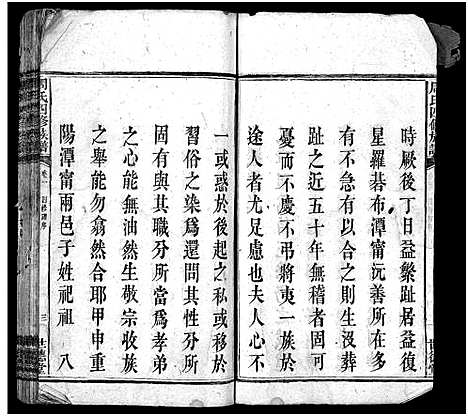 周氏四修族譜
時厥後丁日益繁趾居益復
星羅碁布潭甯沅善所在多
有不急有以合之則生沒葬
趾之近五十年無與載將喜
憂而不慶不弔將夷一族於
途人者尤足慮也夫人心不
一或惑於後起之私或移於
習俗之染爲還問性分所
固有與其職分所當爲孝弟
之心能無油然生敬宗收族
之舉能勿翕然合耶甲申重
陽潭甯兩邑子姓祀祖 八
周氏四修族譜
卷一
三
世德堂